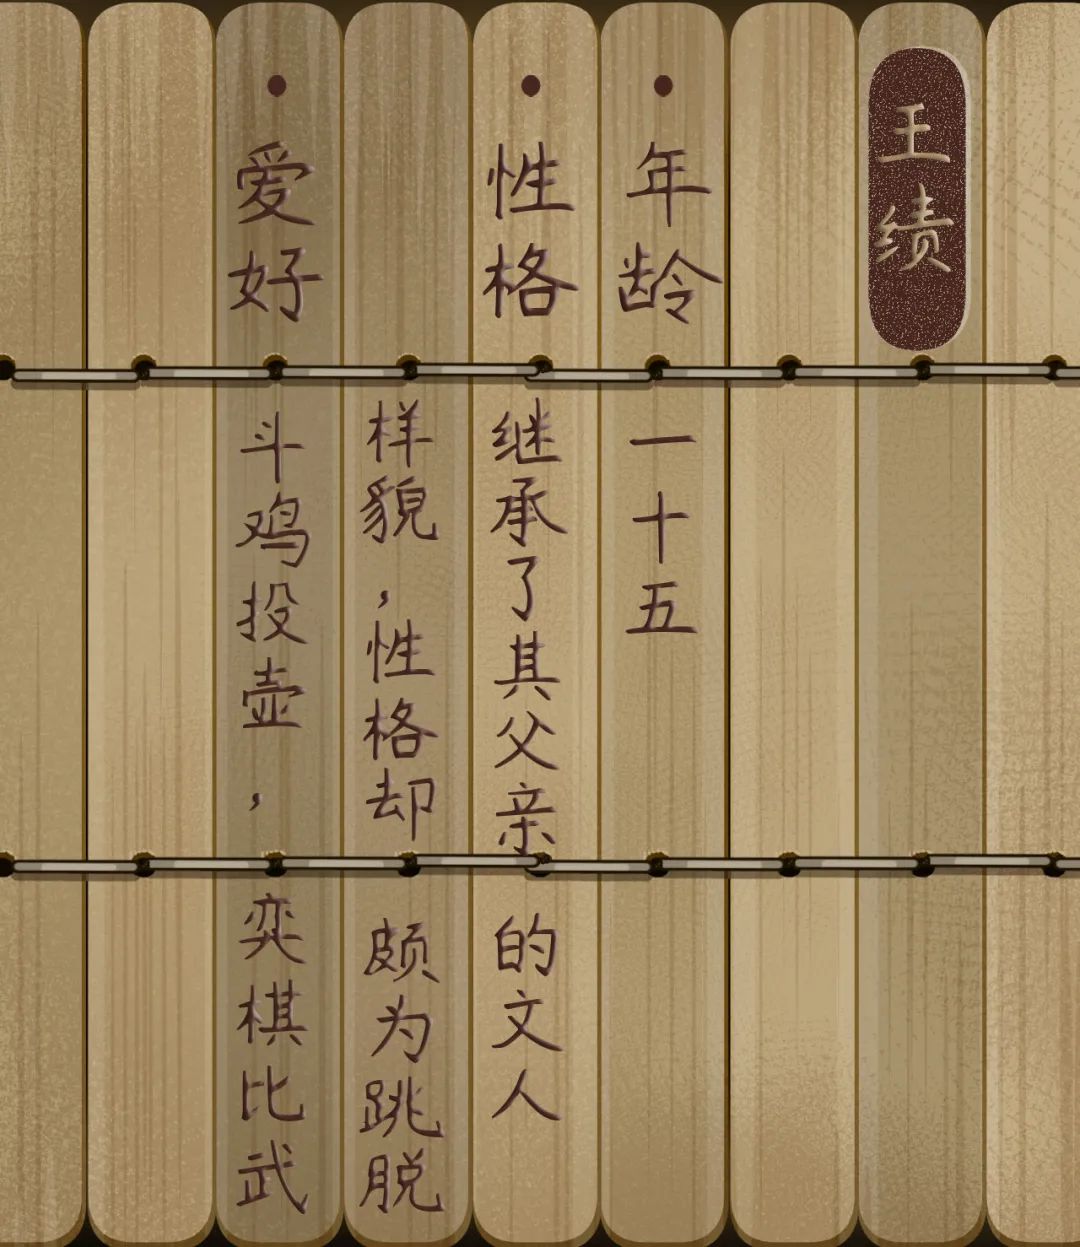 王绩
• 年龄 一十五
• 性格 继承了其父亲的文人
样貌，性格却颇为跳脱
• 爱好 斗鸡投壶，奕棋比武